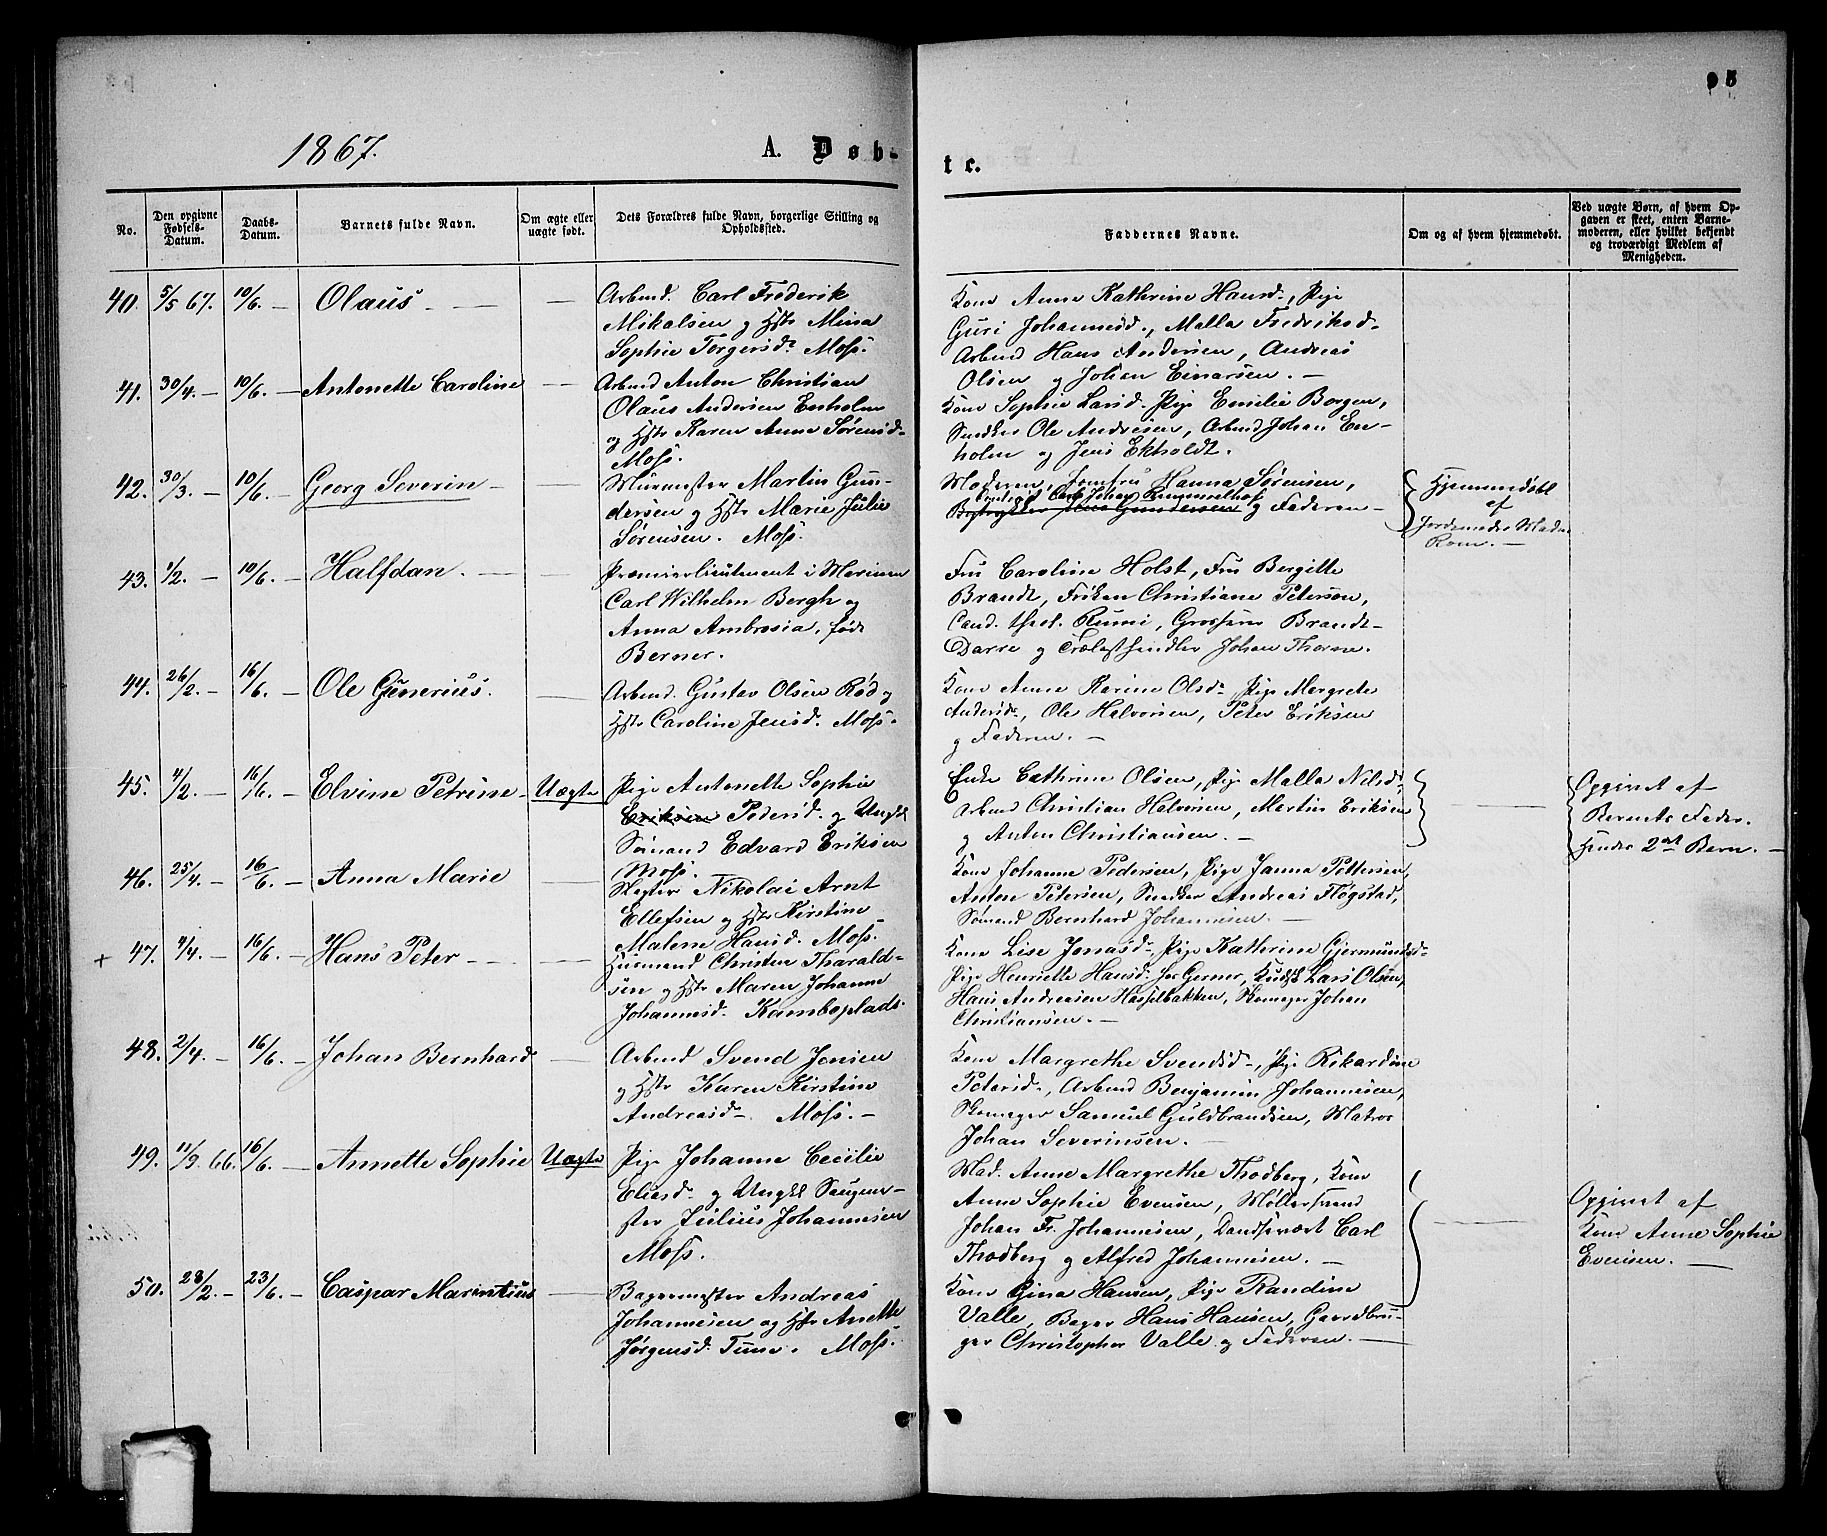 95
1867.
A. Døb-
te.
No.
Den opgivne
Fødsels-
Datum.
Daabs-
Datum.
Barnets fulde Navn.
Om ægte eller
uægte født.
Dets Forældres fulde Navn, borgerlige Stilling og
Opholdssted.
Faddernes Navne.
Om og af hvem hjemmedøbt.
Ved uægte Børn, af hvem Op-
gaven er skeet, enten Barne-
moderen, eller hvilket bekjendt
og troværdigt Medlem af
Menigheden.
40. 5/5 67. 10/6. — Olaus. — —
Arbmd. Carl Frederik
Mikalsen og Hstr Mina
Sophie Torgersdr. Moss.
Kone Anne Kathrine Hansd., Pige
Guri Johannesd., Malla Fredriksd.
Arbmd Hans Andersen, Andreas
Olsen og Johan Einarsen. —
41. 30/4. — 10/6. — Antonette Caroline —
Arbmd Anton Christian
Olaus Andersen Enholm
og Hstr Karen Anne Sørensd.
Moss.
Kone Sophie Larsd. Pige Emilie Borgen,
Snedker Ole Andresen, Arbmd Johan En-
holm og Jens Ekholdt.
42. 30/3. — 10/6. — Georg Severin — —
Murmester Martin Gun-
dersen og Hstr Marie Julie
Sørensen. Moss.
Moderen, Jomfru Hanna Sørensen,
Carl Johan
Gundersen og Faderen —
Hjemmedøbt
af
Jordemoder Mad.
43. 1/2. — 10/6. — Halfdan. — —
Premierlieutenant i Marinen
Carl Wilhelm Bergh og
Anna Ambrosia, født
Berner.
Fru Caroline Holst, Fru Bergitte
Brandt, Frøken Christiane Peterson,
Cand. theol. Rumi, Grosserer Brandt-
Darre og Trælasthandler Johan Thorne.
44. 26/2. — 16/6. — Ole Gunerius. —
Arbmd. Gustav Olsen Rød og
Hstr Caroline Jensd. Moss.
Kone Anne Karine Olsdr, Pige Margrete
Andersdr, Ole Halvorsen, Peter Eriksen
og Faderen. —
45. 4/2. — 16/6. — Elvine Petrine — Uægte
Pige Antonette Sophie
Eriksen Pedersd. og Ungkl
Sømand Edvard Eriksen
Moss.
Enke Cathrine Olsen, Pige Malla Nilsd.,
Arbmd Christian Halvorsen, Martin Eriksen
og Anton Christiansen. —
Opgivet af
Barnets Fader.
Hendes 2det Barn. —
46. 25/4. — 16/6. — Anna Marie —
Nikolai Arnt
Ellefsen og Hstr Kirstine
Malene Hansd. Moss.
Kone Johanne Pedersen, Pige Janna Pettersen,
Anton Petersen, Snedker Andreas Fløgstad,
Sømand Bernhard Johannesen. —
+ 47. 4/4. — 16/6. — Hans Peter — —
Huusmand Christen Tharald-
sen og Hstr Maren Johanne
Johannesd. Kamboplads.
Kone Lise Jonasdr Pige Kathrine Gjermundsd.
Pige Henriette Hansd. fra Gerner, Kudsk Lars Olsen,
Hans Andreasen Hasselbakken, Skomager Johan
Christiansen. —
48. 2/4. — 16/6. — Johan Bernhard —
Arbmd Svend Jensen
og Hstr Karen Kirstine
Andreasdr. Moss. —
Kone Margrethe Svendsd., Pige Rikardine
Petersd., Arbmd Benjamin Johannesen,
Skomager Samuel Guldbrandsen, Matros
Johan Severinsen. —
49. 11/9 66. 16/6. — Annette Sophie Uægte
Pige Johanne Cecilie
Eliasd. og Ungkl Saugme-
ster Julius Johannesen
Moss.
Mad. Anne Margrethe Thodberg, Kone
Anne Sophie Evensen, Møllersvend
Johan Fr. Johannesen, Dandsevært Carl
Thodberg og Alfred Johannesen. —
Opgivet af
Kone Anne Sophie
Evensen. —
50. 28/2. — 23/6. — Caspar Marentius —
Bagermester Andreas
Johannesen og Hstr Anette
Jørgensd. Tune. Moss.
Kone Gina Hansen, Pige Randine
Valle, Bager Hans Hansen, Gaardbru-
ger Christopher Valle og Faderen. —